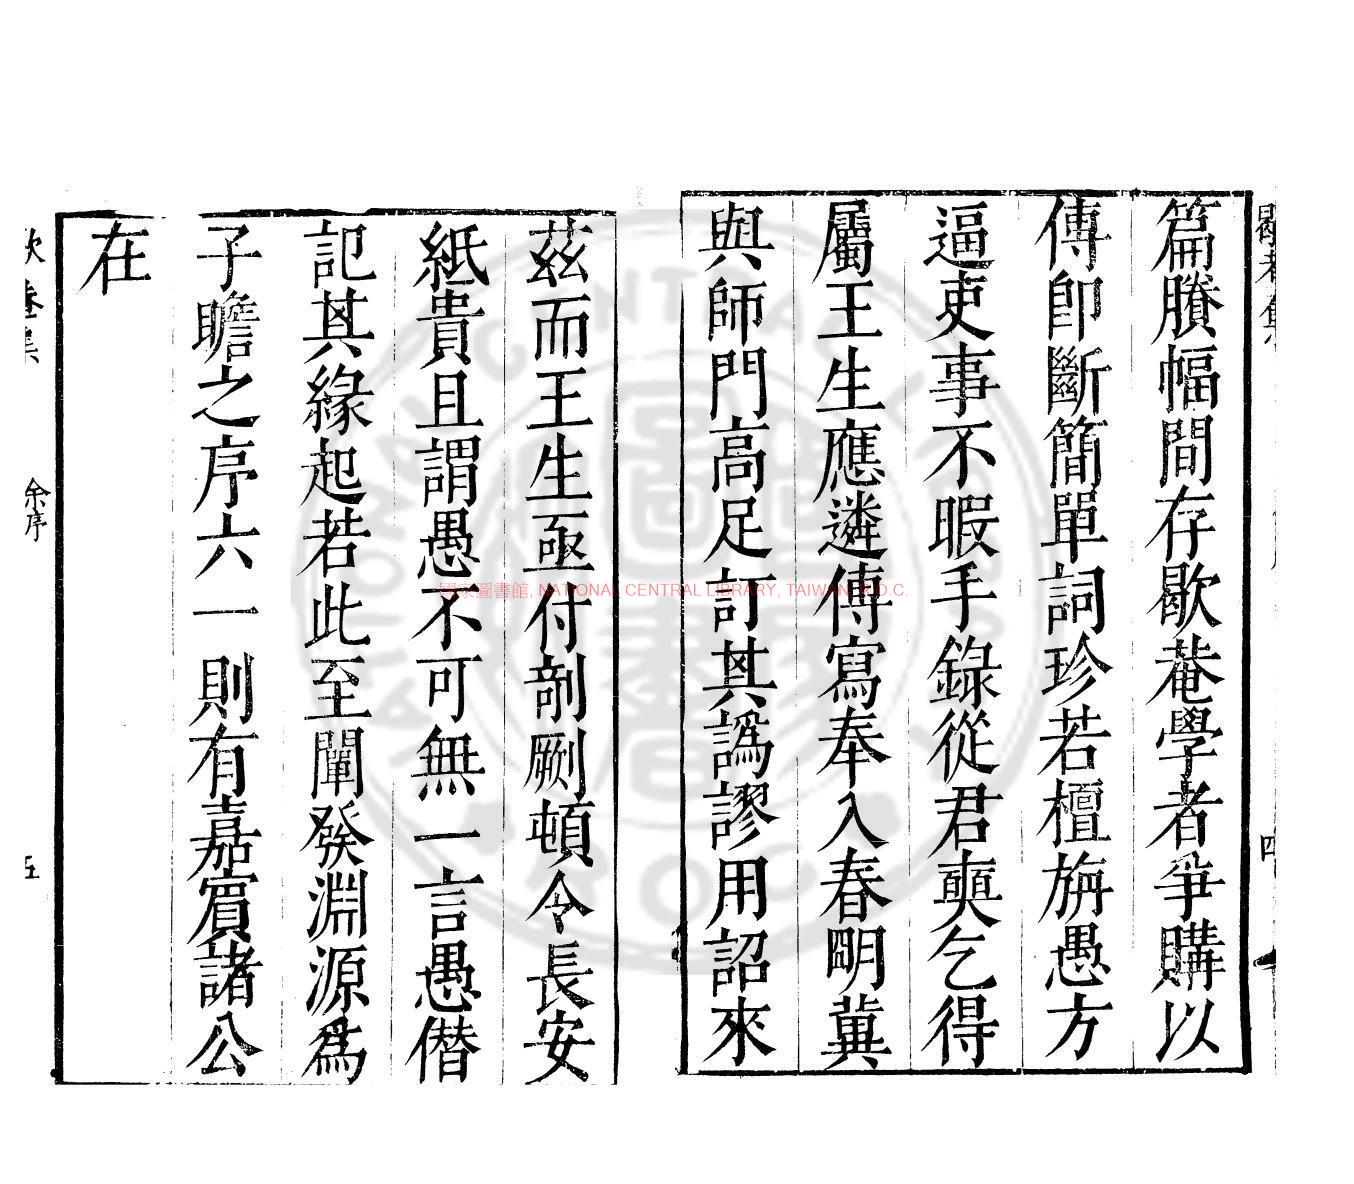 歇菴集
四
篇賸幅間存歇菴學者爭購以
傳卽斷簡單詞珍若檀旃愚方
逼吏事不暇手錄從君奭乞得
屬王生應遴傳寫奉入春明冀
與師門高足訂其譌謬用詔來
茲而王生亟付剞劂頓令長安
紙貴且謂愚不可無一言愚僭
記其緣起若此至闡發淵源爲
子瞻之序六一則有嘉賓諸公
在
歇菴集
余序
五
國家圖書館, NATIONAL CENTRAL LIBRARY, TAIWAN, R.O.C.